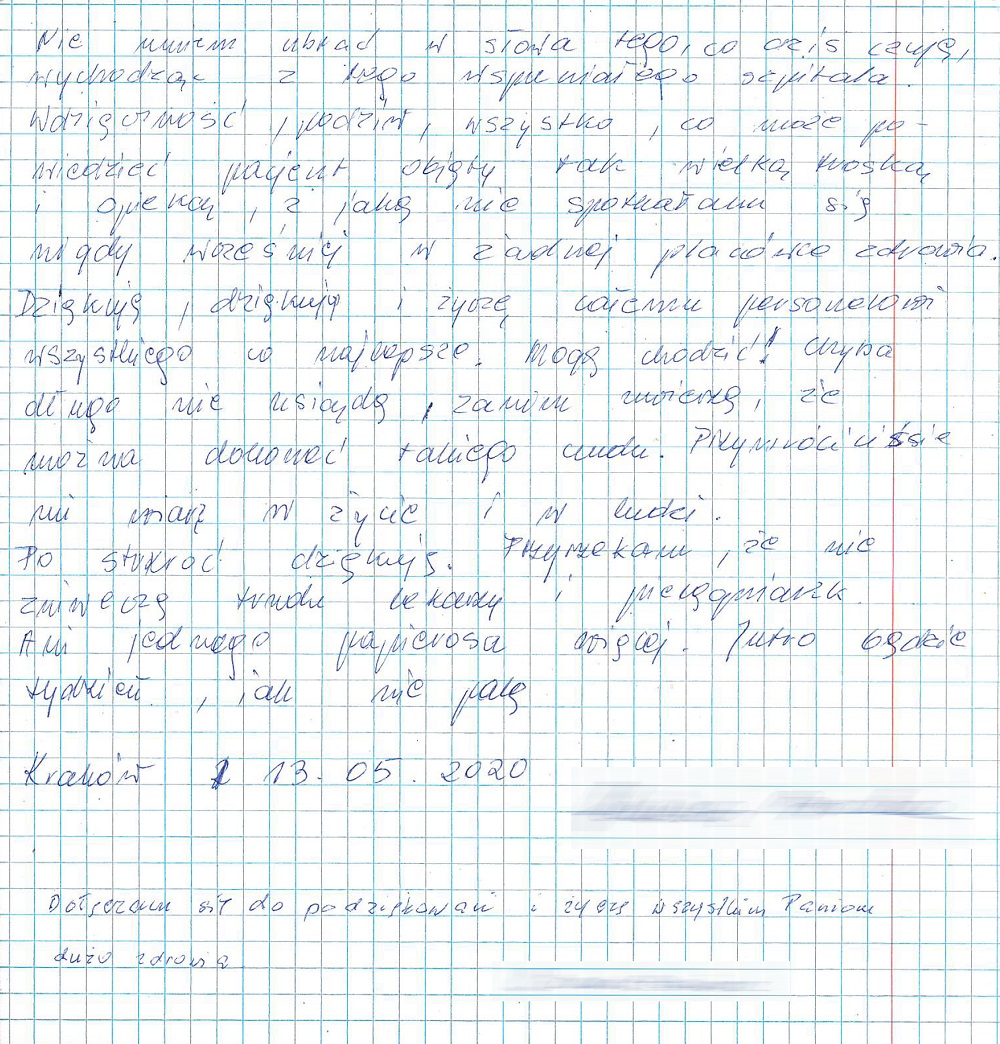 Nie umiem ubrać w słowa tego, co dziś czuję,
wychodząc z tego wspaniałego szpitala.
Wdzięczność, podziw, wszystko, co może po-
wiedzieć pacjent objęty tak wielką troską
i opieką, z jaką nie spotkałam się
nigdy wcześniej w żadnej placówce zdrowia.
Dziękuję, dziękuję i życzę całemu personelowi
wszystkiego co najlepsze. Mogę chodzić! Chyba
długo nie usiądę, zanim uwierzę, że
można dokonać takiego cudu. Przywróciliście
mi wiarę w życie i w ludzi.
Po stokroć dziękuję. Przyrzekam, że nie
zniweczę trudu lekarzy i pielęgniarek.
Ani jednego papierosa więcej. Jutro będzie
tydzień, jak nie palę
Kraków 13.05.2020
Dołączam się do podziękowań i życzę wszystkim Paniom
dużo zdrowia.